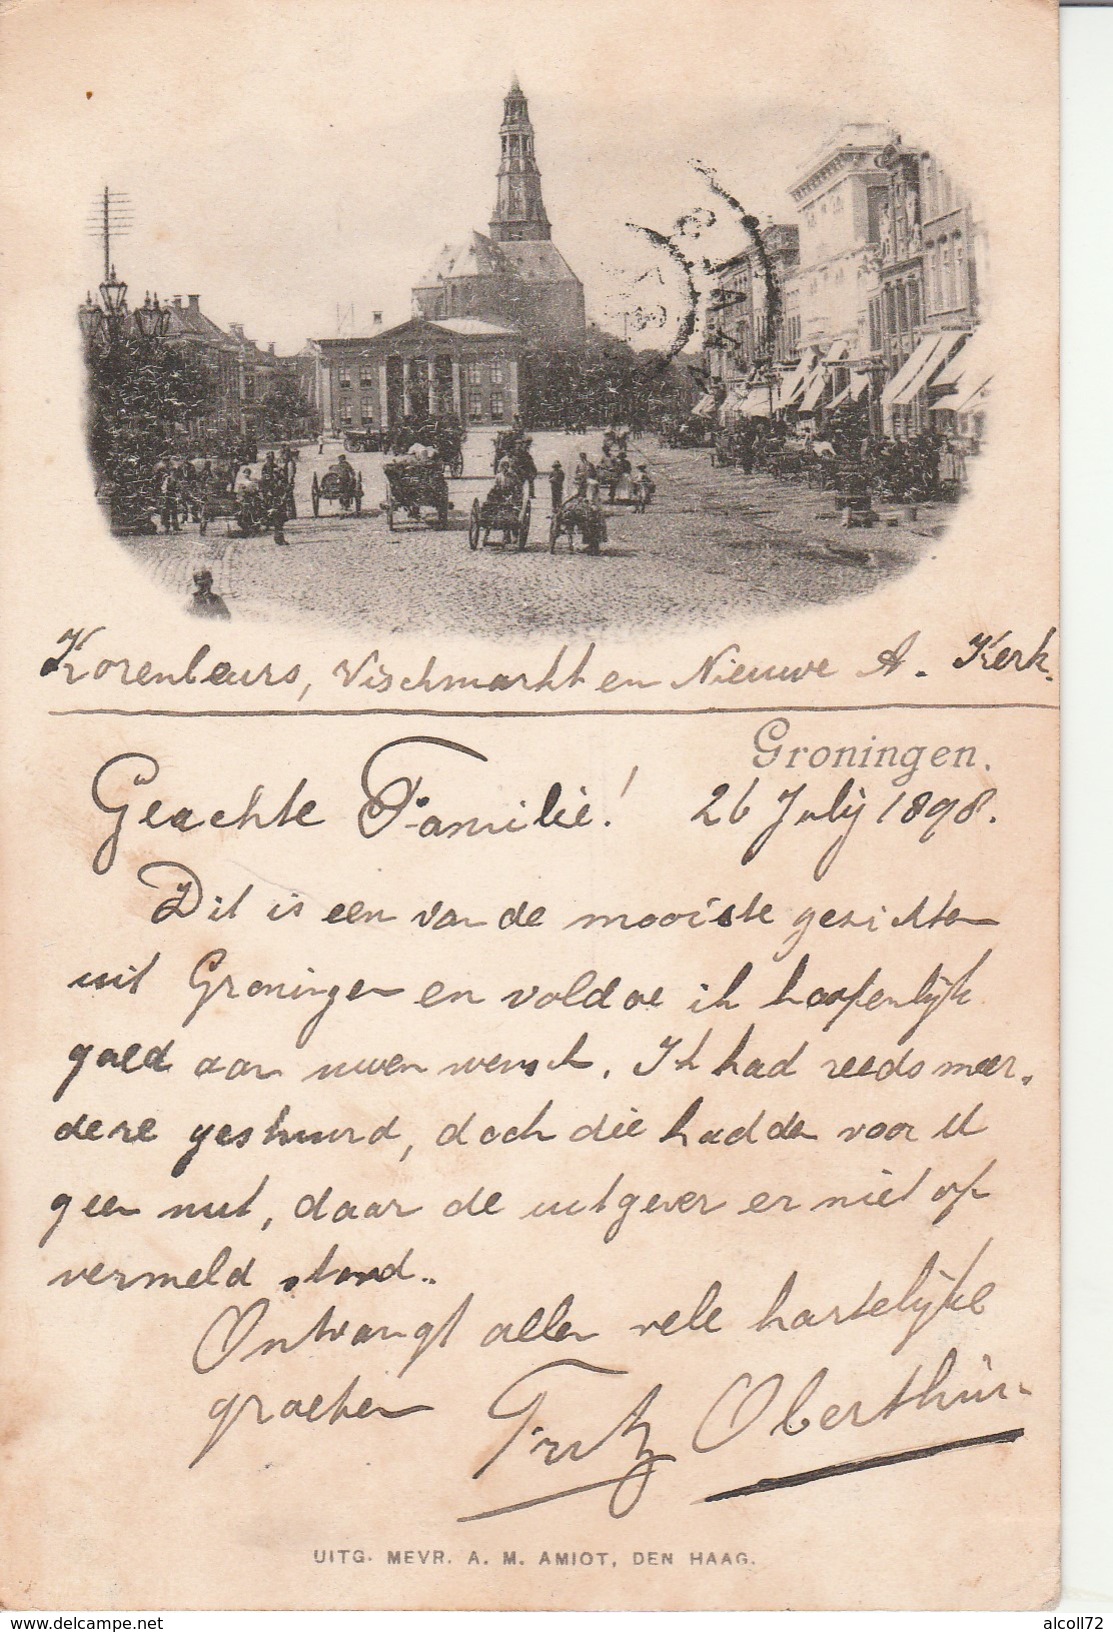 Korenbeurs, Vischmarkt en Nieuwe A. Kerk.
Groningen.
Geachte Familie! 26 July 1898.
Dit is een van de mooiste gezichten
uit Groningen en voldoe ik hoopenlijk
goed aan uwen wensch. Ik had reeds meer-
dere gestuurd, doch die hadden voor U
geen nut, daar de uitgever er niet op
vermeld stond.
Ontvangt allen vele hartelijke
groeten Fritz Oberthür
UITG. MEVR. A. M. AMIOT, DEN HAAG.
www.delcampe.net
alcoll72